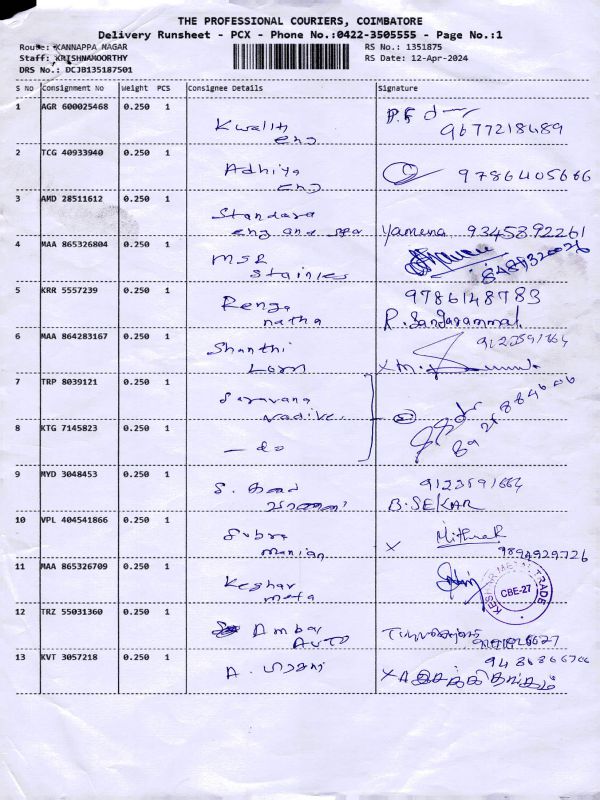 THE PROFESSIONAL COURIERS, COIMBATORE
Delivery Runsheet - PCX - Phone No.:0422-3505555 - Page No.:1
Route: KANNAPPA NAGAR
RS No.: 1351875
Staff: KRISHNAMOORTHY
RS Date: 12-Apr-2024
DRS No.: DCJB135187501
S No Consignment No Weight PCS Consignee Details Signature
1 AGR 600025468 0.250 1
Kwality
eng
9677218489
2 TCG 40933940 0.250 1
Adhiya
eng
9786405666
3 AMD 28511612 0.250 1
Standard
eng and spa
Yamena 9345892261
4 MAA 865326804 0.250 1
MSR
Stainles
5 KRR 5557239 0.250 1
Renga
natha
9786148783
R. Sandarammal
6 MAA 864283167 0.250 1
Shanthi
Lorry
7 TRP 8039121 0.250 1
Saravana
Vadive
8 KTG 7145823 0.250 1
- do
9 MYD 3048453 0.250 1
9123591664
B. SEKAR
10 VPL 404541866 0.250 1
Subra
manian
X Mithra
9894929726
11 MAA 865326709 0.250 1
Keshar
meta
KESHAR METAL TRADE
CBE-27
12 TRZ 55031360 0.250 1
Ambar
AUTO
13 KVT 3057218 0.250 1
A.